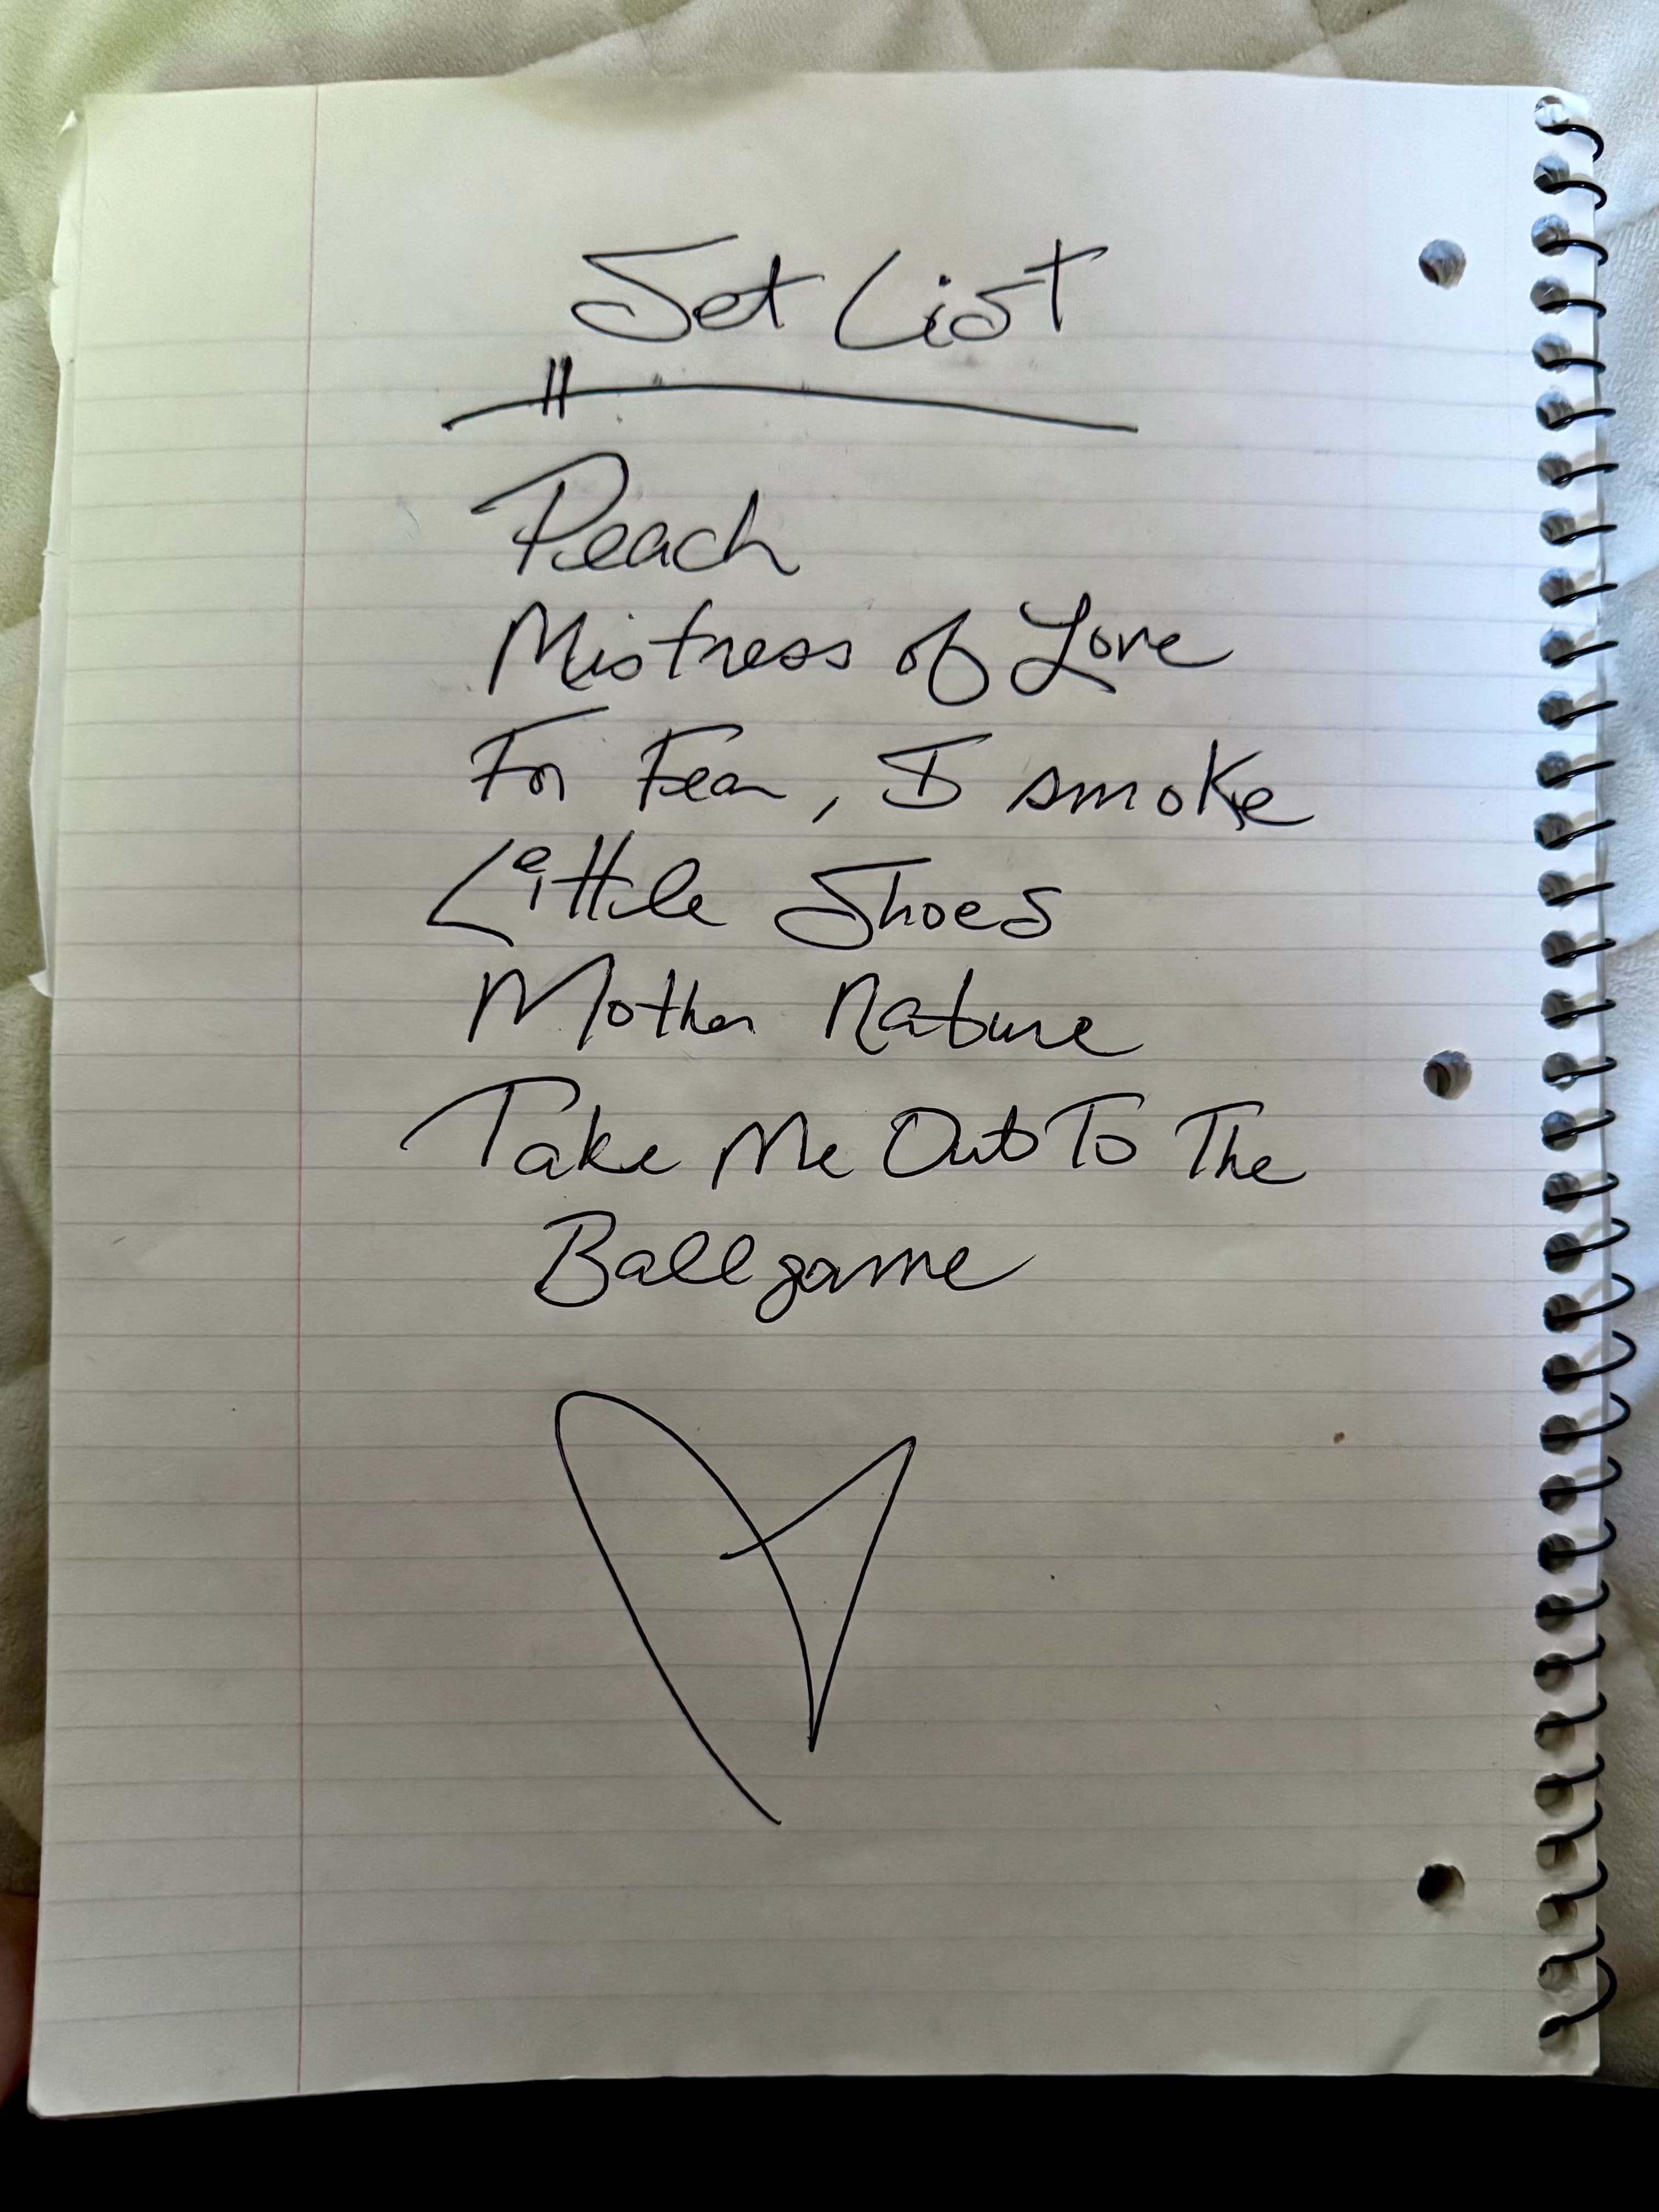 Set List
Peach
Mistress of Love
For Fear, I smoke
Little Shoes
Mother Nature
Take Me Out To The
Ballgame